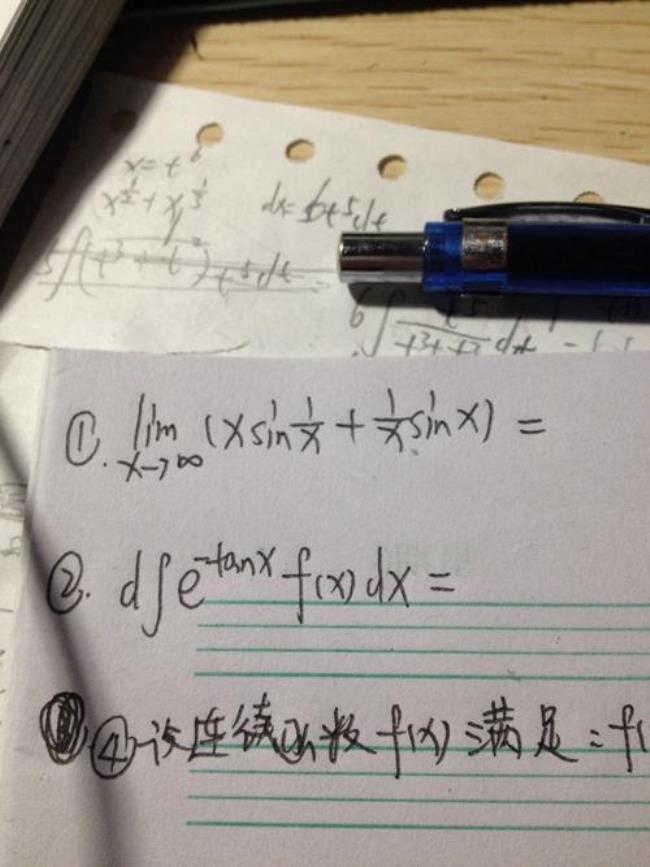 x=t⁶
x^½+x^⅓ dx=6t⁵dt
①. lim x→∞ (x sin 1/x + 1/x sin x) =
②. d∫e^(-tanx) f(x) dx =
④设连续函数f(x)满足:f(